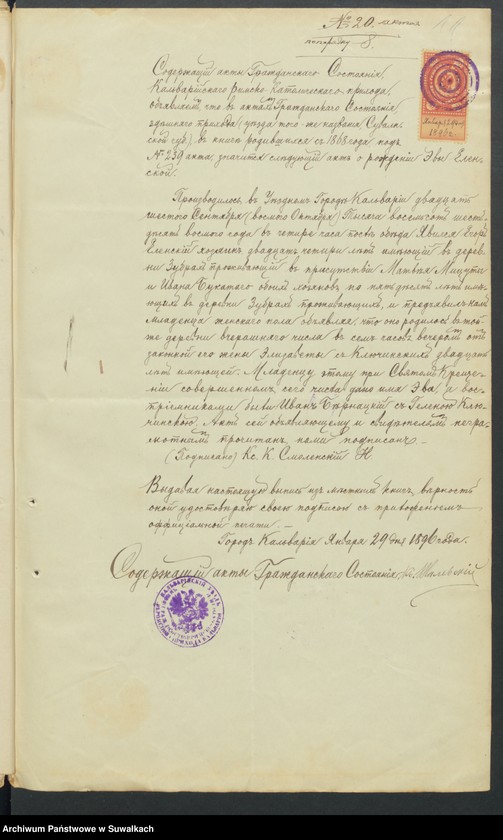 № 20.
по порядку 8.
Содержащий акты Гражданского Состоянія,
Кальварійскаго Римско-Католическаго прихода,
объявляетъ, что въ актахъ Гражданскаго Состоянія
здешняго прихода (уезда того-же названія Сувалк-
ской губ.) въ книге родившихся съ 1868 года подъ
№ 239 акта, значится следующій актъ о рожденіи Эвы Елен-
ской.
Января 29 дня
1896 г.
Происходило, въ Уездномъ Городе Кальваріи двадцать
шестого Сентября (восьмого Октября) Тысяча восемьсотъ шесть-
десятъ восьмого года въ четыре часа после обеда. Явился
Еленскій двадцать четыре летъ имеющій въ дерев-
не Зубрахъ проживающій въ присутствіи Матвея Мицуты
и Ивана Букатаго обоихъ по пятьдесятъ летъ име-
ющихъ въ деревни Зубрахъ проживающихъ, и предъявилъ намъ
младенца женскаго пола объявляя что оно родилось въ той
же деревни вчерашняго числа въ семь часовъ вечеромъ отъ
законной его жены Элизаветы съ Ключинскихъ двадцать
летъ имеющей. Младенцу этому при Святомъ Креще-
ніи совершенномъ сего числа дано имя Эва, а вос-
пріемниками были Иванъ съ Еленою Клю-
чинскою. Актъ сей объявляющему и свидетелямъ негра-
мотнымъ прочитанъ, нами подписанъ.—
(Подписано) Кс. К. Смоленскій
Выдавая настоящую выпись изъ книгъ, верность
оной удостоверяю своею подписью съ приложеніемъ
оффиціальной печати.—
Городъ Кальварія Января 29 дня 1896 года.
Содержащій акты Гражданскаго Состоянія
Archiwum Państwowe w Suwałkach